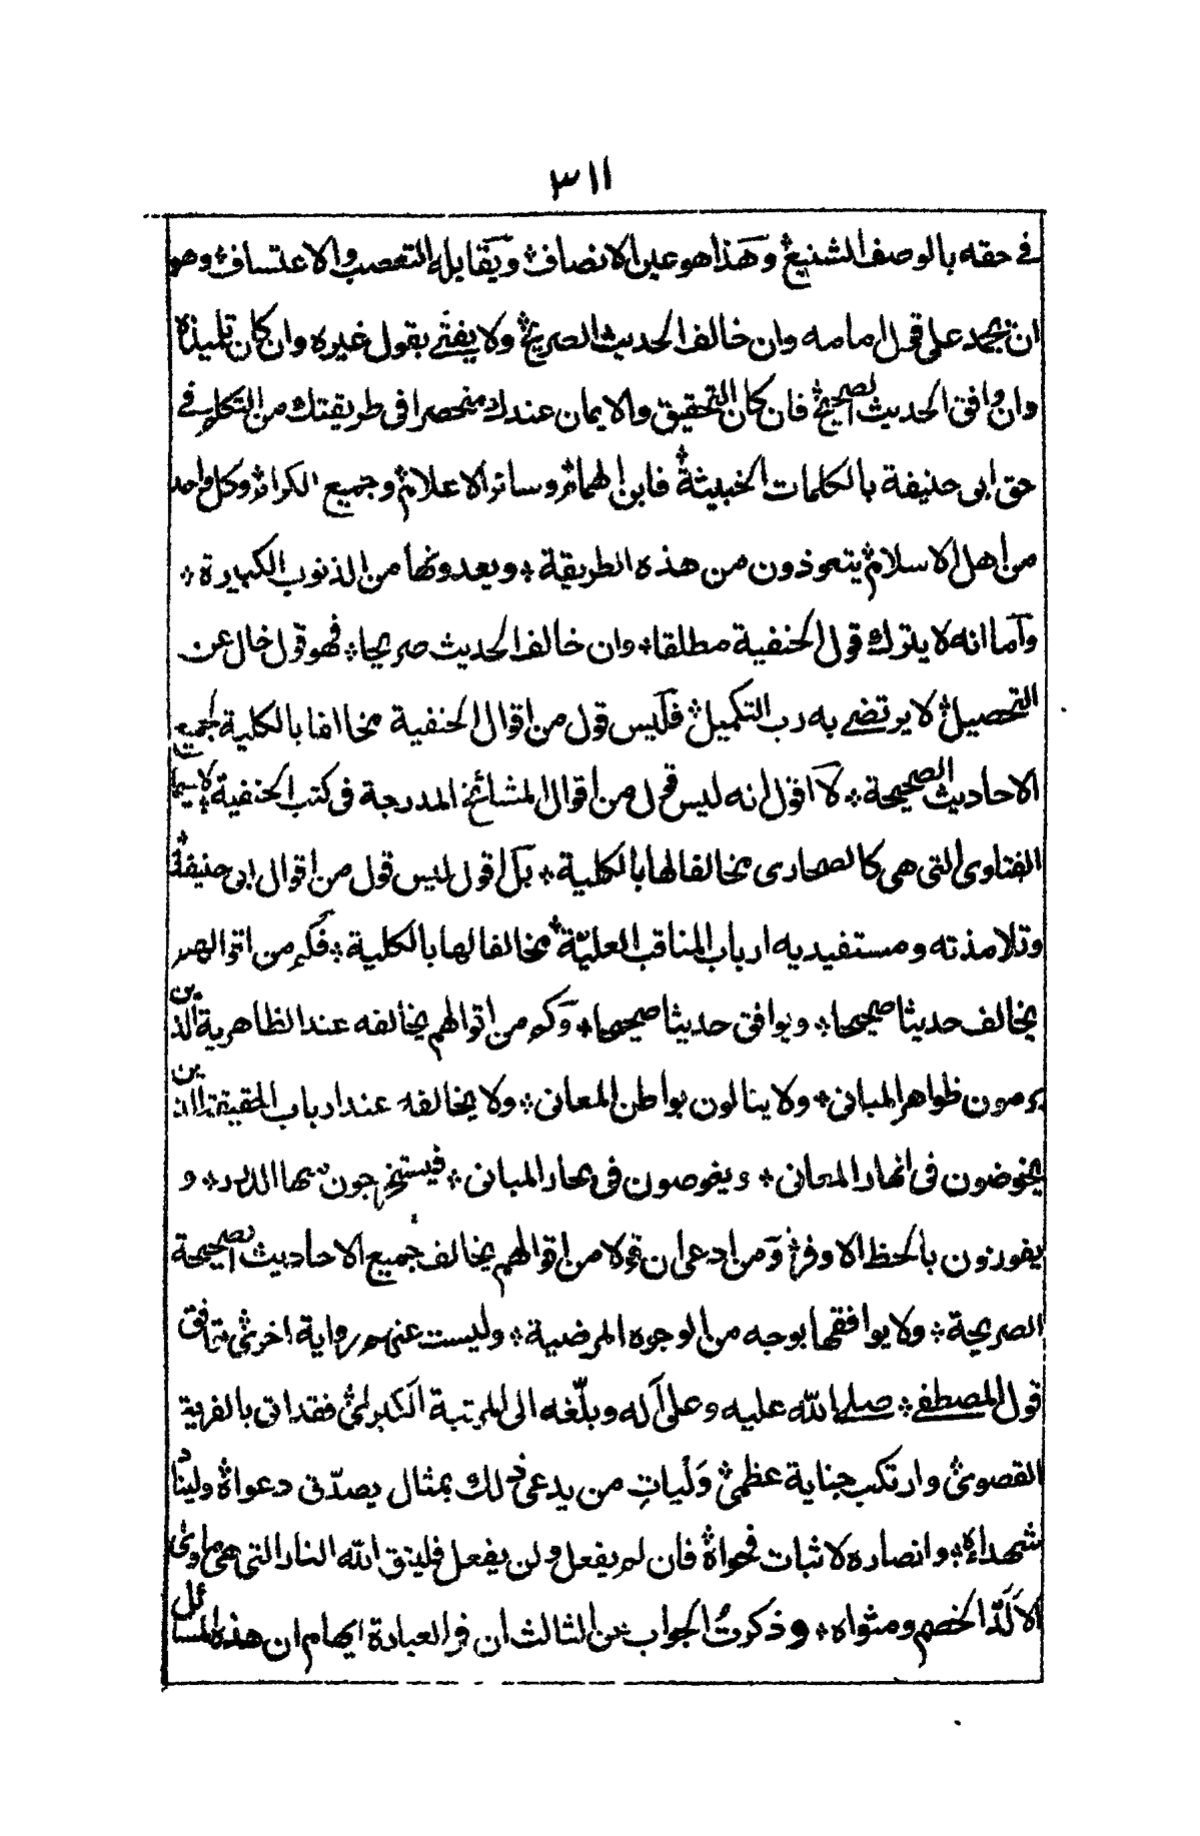 ٣١١
فى حقه بالوصف الشنيع؞ وهذا هو عين الانصاف؞ ويقابله التعصب والاعتساف؞ وهو
ان يجمد على قول امامه وان خالف الحديث الصريح؞ ولا يفتى بقول غيره وان كان تلميذه
وان وافق الحديث الصحيح؞ فان كان التحقيق والايمان عندك منحصرا فى طريقتك من التكلم فى
حق ابى حنيفة بالكلمات الخبيثة؞ فابن الهمام؞ وسائر الاعلام؞ وجميع الكرام؞ وكل واحد
من اهل الاسلام؞ يتعوذون من هذه الطريقة؞ ويعدونها من الذنوب الكبيرة؞
وآما انه لا يترك قول الحنفية مطلقا؞ وان خالف الحديث صريحا؞ فهو قول خال عن
التحصيل؞ لا يرتضى به رب التكميل؞ فليس قول من اقوال الحنفية مخالفا بالكلية لجميع
الاحاديث الصحيحة؞ لا اقول انه ليس قول من اقوال المشائخ المدرجة فى كتب الحنفية؞ لا سيما
الفتاوى التى هى كالصحارى مخالفا لها بالكلية؞ بل اقول ليس قول من اقوال ابى حنيفة؞
وتلامذته ومستفيديه ارباب المناقب العليّة؞ مخالفا لها بالكلية؞ فكم من اقوالهم
يخالف حديثا صحيحا؞ ويوافق حديثا صحيحا؞ وكم من اقوالهم يخالفه عند الظاهرية الذين
يرمون ظواهر المبانى؞ ولا ينالون بواطن المعانى؞ ولا يخالفه عند ارباب الحقيقة الذين
يخوضون فى انهار المعانى؞ ويغوصون فى بحار المبانى؞ فيستخرجون منها الدرر؞ و
يفوزون بالحظ الاوفر؞ ومن ادعى ان قولا من اقوالهم يخالف جميع الاحاديث الصحيحة
الصريحة؞ ولا يوافقها بوجه من الوجوه المرضية؞ وليست عنهم رواية اخرى؞ توافق
قول المصطفى؞ صلى الله عليه وعلى آله وبلّغه الى المرتبة الكبرى؞ فقد اتى بالفرية
القصوى؞ وارتكب جناية عظمى؞ وليات من يدعى ذلك بمثال يصدّق دعواه؞ وليناد
شهداءه؞ وانصاره لاثبات فحواه؞ فان لم يفعل ولن يفعل فليتق الله النار التى هى ماوى
الالدّ الخصم ومثواه؞ وذكرتُ الجواب عن الثالث ان فى العبادة ايهام ان هذه المسائل